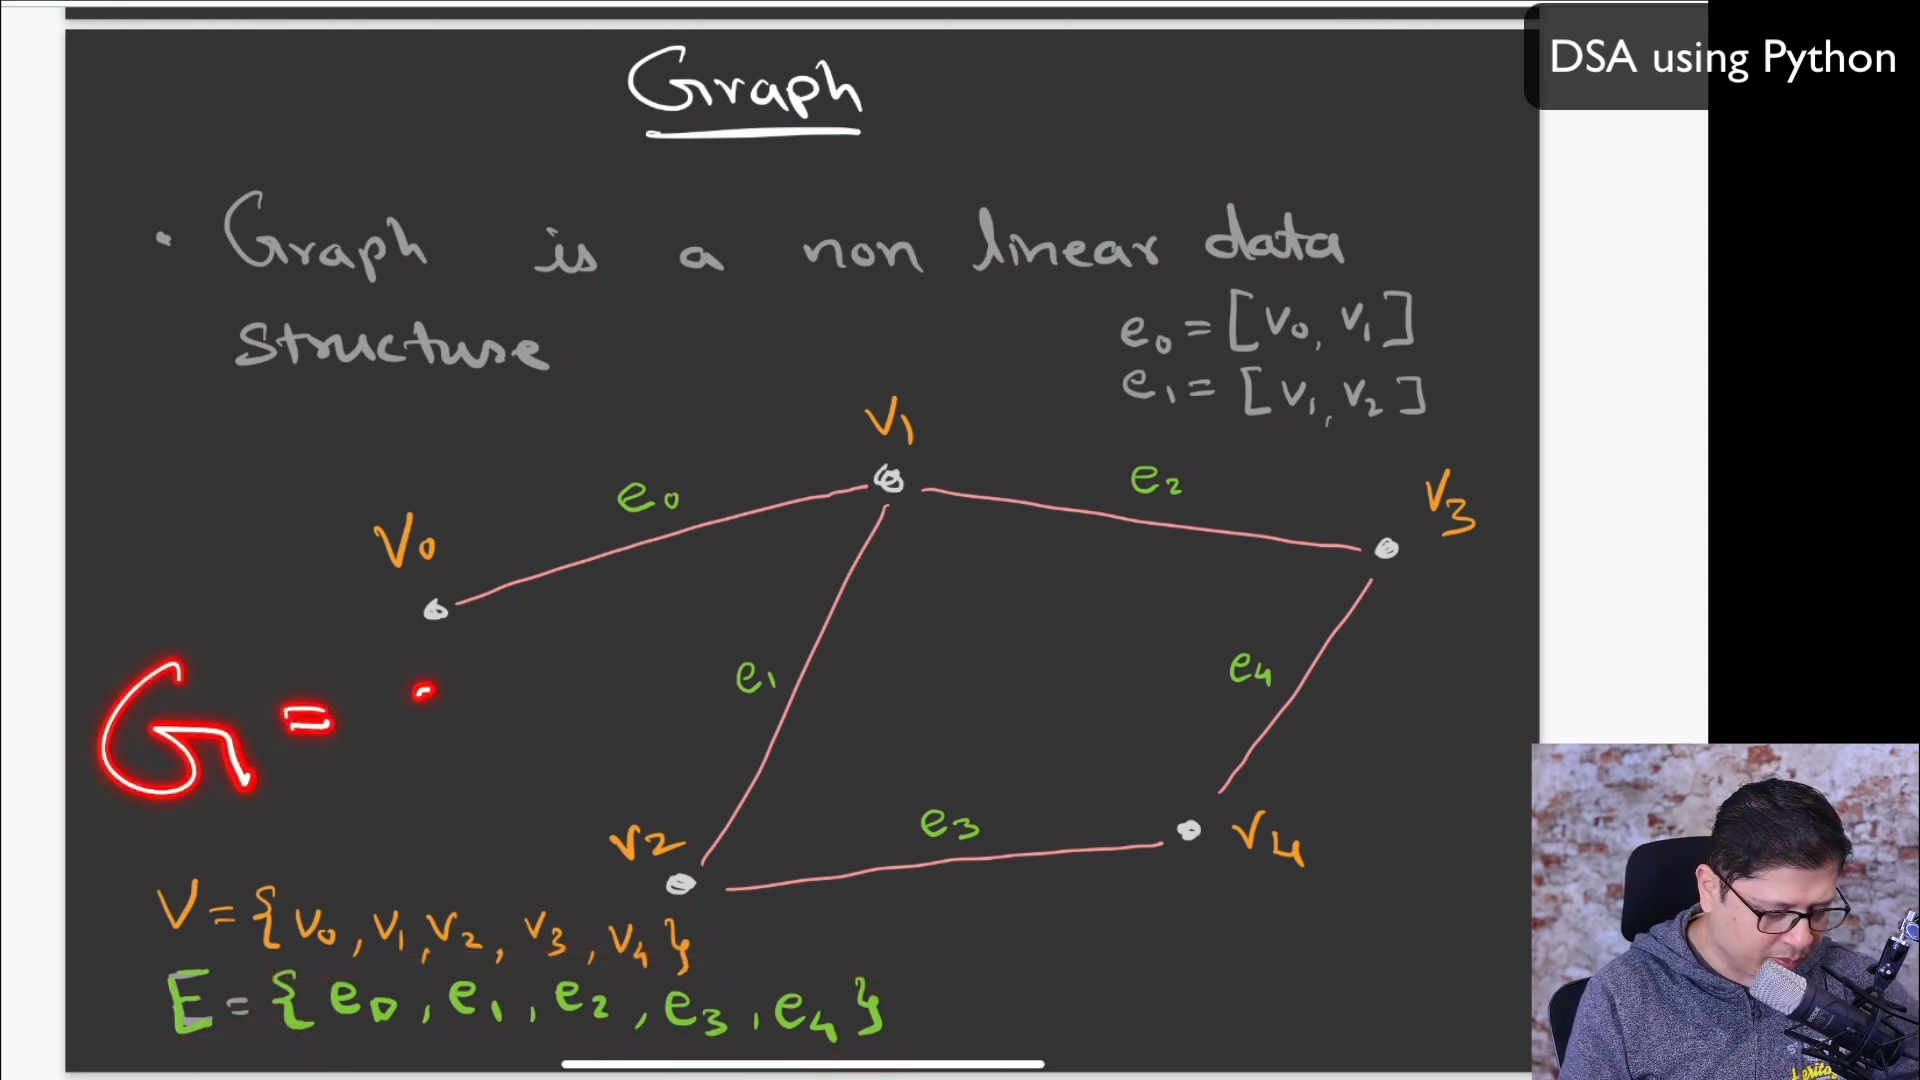 Graph
DSA using Python
• Graph is a non linear data
structure
e0 = [v0, v1]
e1 = [v1, v2]
v1
e0
e2
v3
v0
e1
e4
G =
v2
e3
v4
V = {v0, v1, v2, v3, v4}
E = {e0, e1, e2, e3, e4}